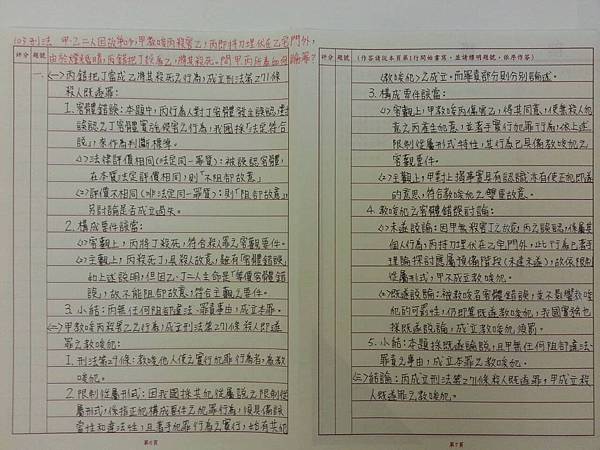 評分 題號
103刑法 甲、乙二人因故爭吵,甲教唆丙殺害乙,丙即持刀埋伏在乙宅門外,
由於燈光昏暗,丙錯把丁較為乙,將其殺死。問甲丙所為如何論罪?
一、<一>丙錯把丁當成乙,將其殺死之行為,成立刑法第271條
殺人既遂罪:
1.客體錯誤:本題中,丙行為人對丁客體發生誤認,對
誤認之丁客體實施殺害之行為,我國採「法定符合
說」,來作為判斷標準。
<1>法律評價相同(法定同一罪質):被誤認客體,
在本質法定評價相同,則"不阻卻故意"
<2>評價不相同(非法定同一罪質):則"阻卻故意",
另討論是否成立過失。
2.構成要件該當:
<1>客觀上,丙將丁殺死,符合殺人罪之客觀要件。
<2>主觀上,丙殺死丁,具殺人故意,雖有"客體錯誤"
如上述說明,但因乙、丁二人生命是「等價客體錯
誤」,故不能阻卻故意,符合主觀之要件。
3.小結:丙無任何阻卻違法、罪責事由,成立本罪。
<二>甲教唆丙殺害乙之行為,成立刑法第271條殺人即遂
罪之教唆犯:
1.刑法第29條:教唆他人使之實行犯罪行為者,為教
唆犯。
2.限制從屬形式:因我國採共犯從屬說之限制從
屬形式,係指正犯構成要件之犯罪行為,須具備該
當性和違法性,且著手犯罪行為之實行,始有共犯
第6頁
評分 題號 (作答請從本頁第1行開始書寫,並請標明題號,依序作答)
<教唆犯>之成立,而罪責部分則分別論述。
3.構成要件該當:
<1>客觀上,甲教唆丙傷害乙,得其同意,使無殺人犯
意之丙產生犯意,並著手實行犯罪行為,依上述
限制從屬形式特性,其行為已具備教唆犯之
客觀要件。
<2>主觀上,甲對上揭事實具有認識,亦有使正犯即遂
的意思,符合教唆犯之雙重故意。
4.教唆犯之客體錯誤討論:
<1>未遂說論:因甲無殺害丁之故意,丙之誤認,係屬其
個人行為,丙持刀埋伏在乙宅門外,此行為已著手
理論探討應屬預備階段(未達未遂),故依限制
從屬形式,甲不成立教唆犯。
<2>既遂說論:被教唆者客體錯誤,並不影響教唆
犯的可罰性,仍即算既遂教唆犯,我國實務也
採既遂說論,成立教唆犯須罰。
5.小結:本題採既遂說論,且甲無任何阻卻違法、
罪責之事由,成立本罪之教唆犯。
<三>結論:丙成立刑法第271條殺人既遂罪,甲成立殺
人既遂罪之教唆犯。
第7頁